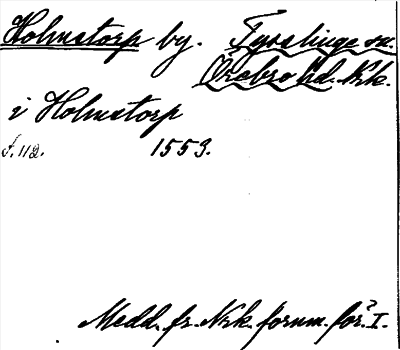 Holmstorp by. Tysslinge sn.
Örebro hd. Nrk.
i Holmstorp
s. 112. 1553.
Medd. fr. Nrk. fornm. för. I.